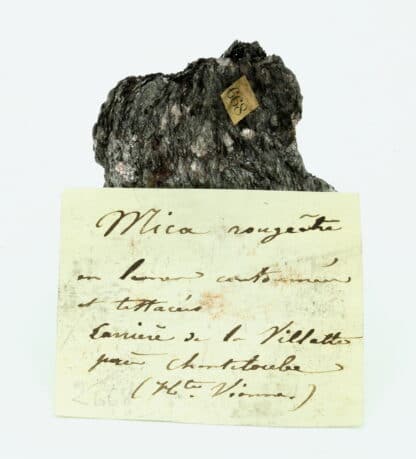 668
Mica rougeâtre
en lames contournées
et testacées
Carrière de la Villatte
près Chanteloube
(Hte Vienne)